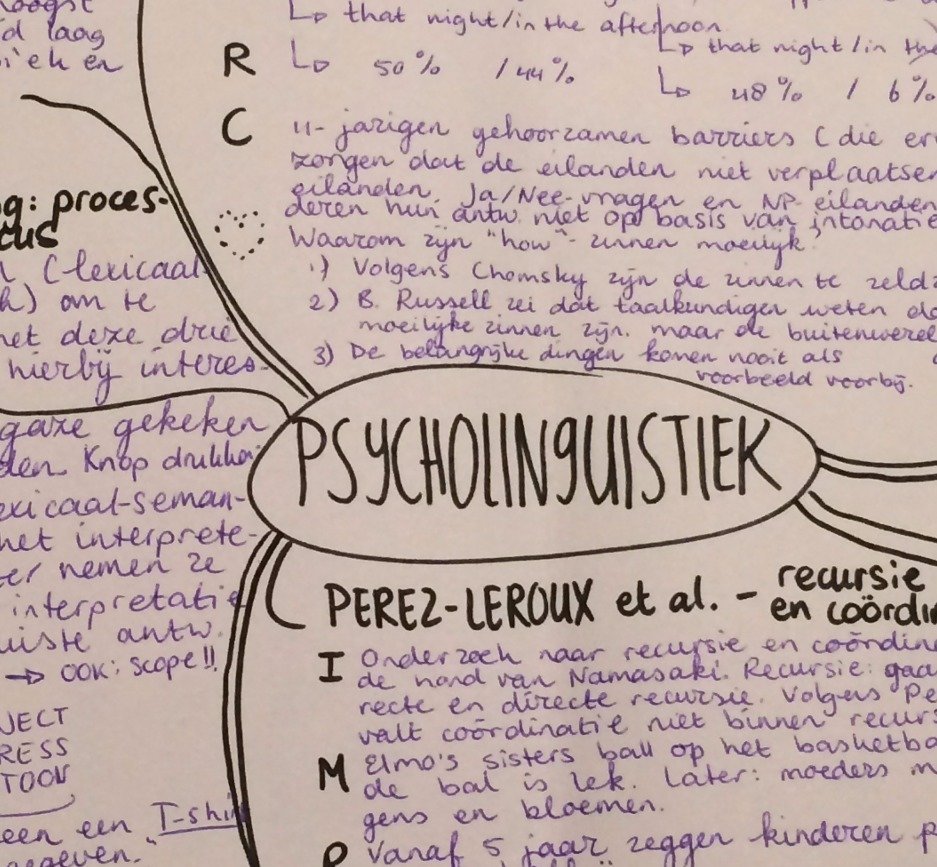 laag
en
proces-
(lexicaal
om te
deze drie
hierbij interes-
gaze gekeken
Knop
lexicaal-seman-
het interprete-
nemen ze
interpretatie
antw.
→ OOK: scope!!
een een T-shi
↳ that night/in the afternoon
↳ that night/in the
R ↳ 50% / 44%
↳ 48% / 6%
C 4-jarigen gehoorzamen barriers (die er
zorgen dat de eilanden niet verplaatsen
eilanden. Ja/Nee-vragen en NP-eilanden
deren hun antw. niet op basis van intonatie
Waarom zijn "how"-zinnen moeilijk
1) Volgens Chomsky zijn de zinnen te
2) B. Russell zei dat taalkundigen weten
moeilijke zinnen zijn. maar de
3) De belangrijke dingen komen nooit als
voorbeeld voorbij.
PSYCHOLINGUISTIEK
PEREZ-LEROUX et al. - recursie
en
I Onderzoek naar recursie en
de hand van Namasaki. Recursie:
recte en directe recursie. Volgens
valt coördinatie niet binnen
M Elmo's sisters ball op het
de bal is lek. Later: moeders
gens en bloemen.
Vanaf 5 jaar zeggen kinderen